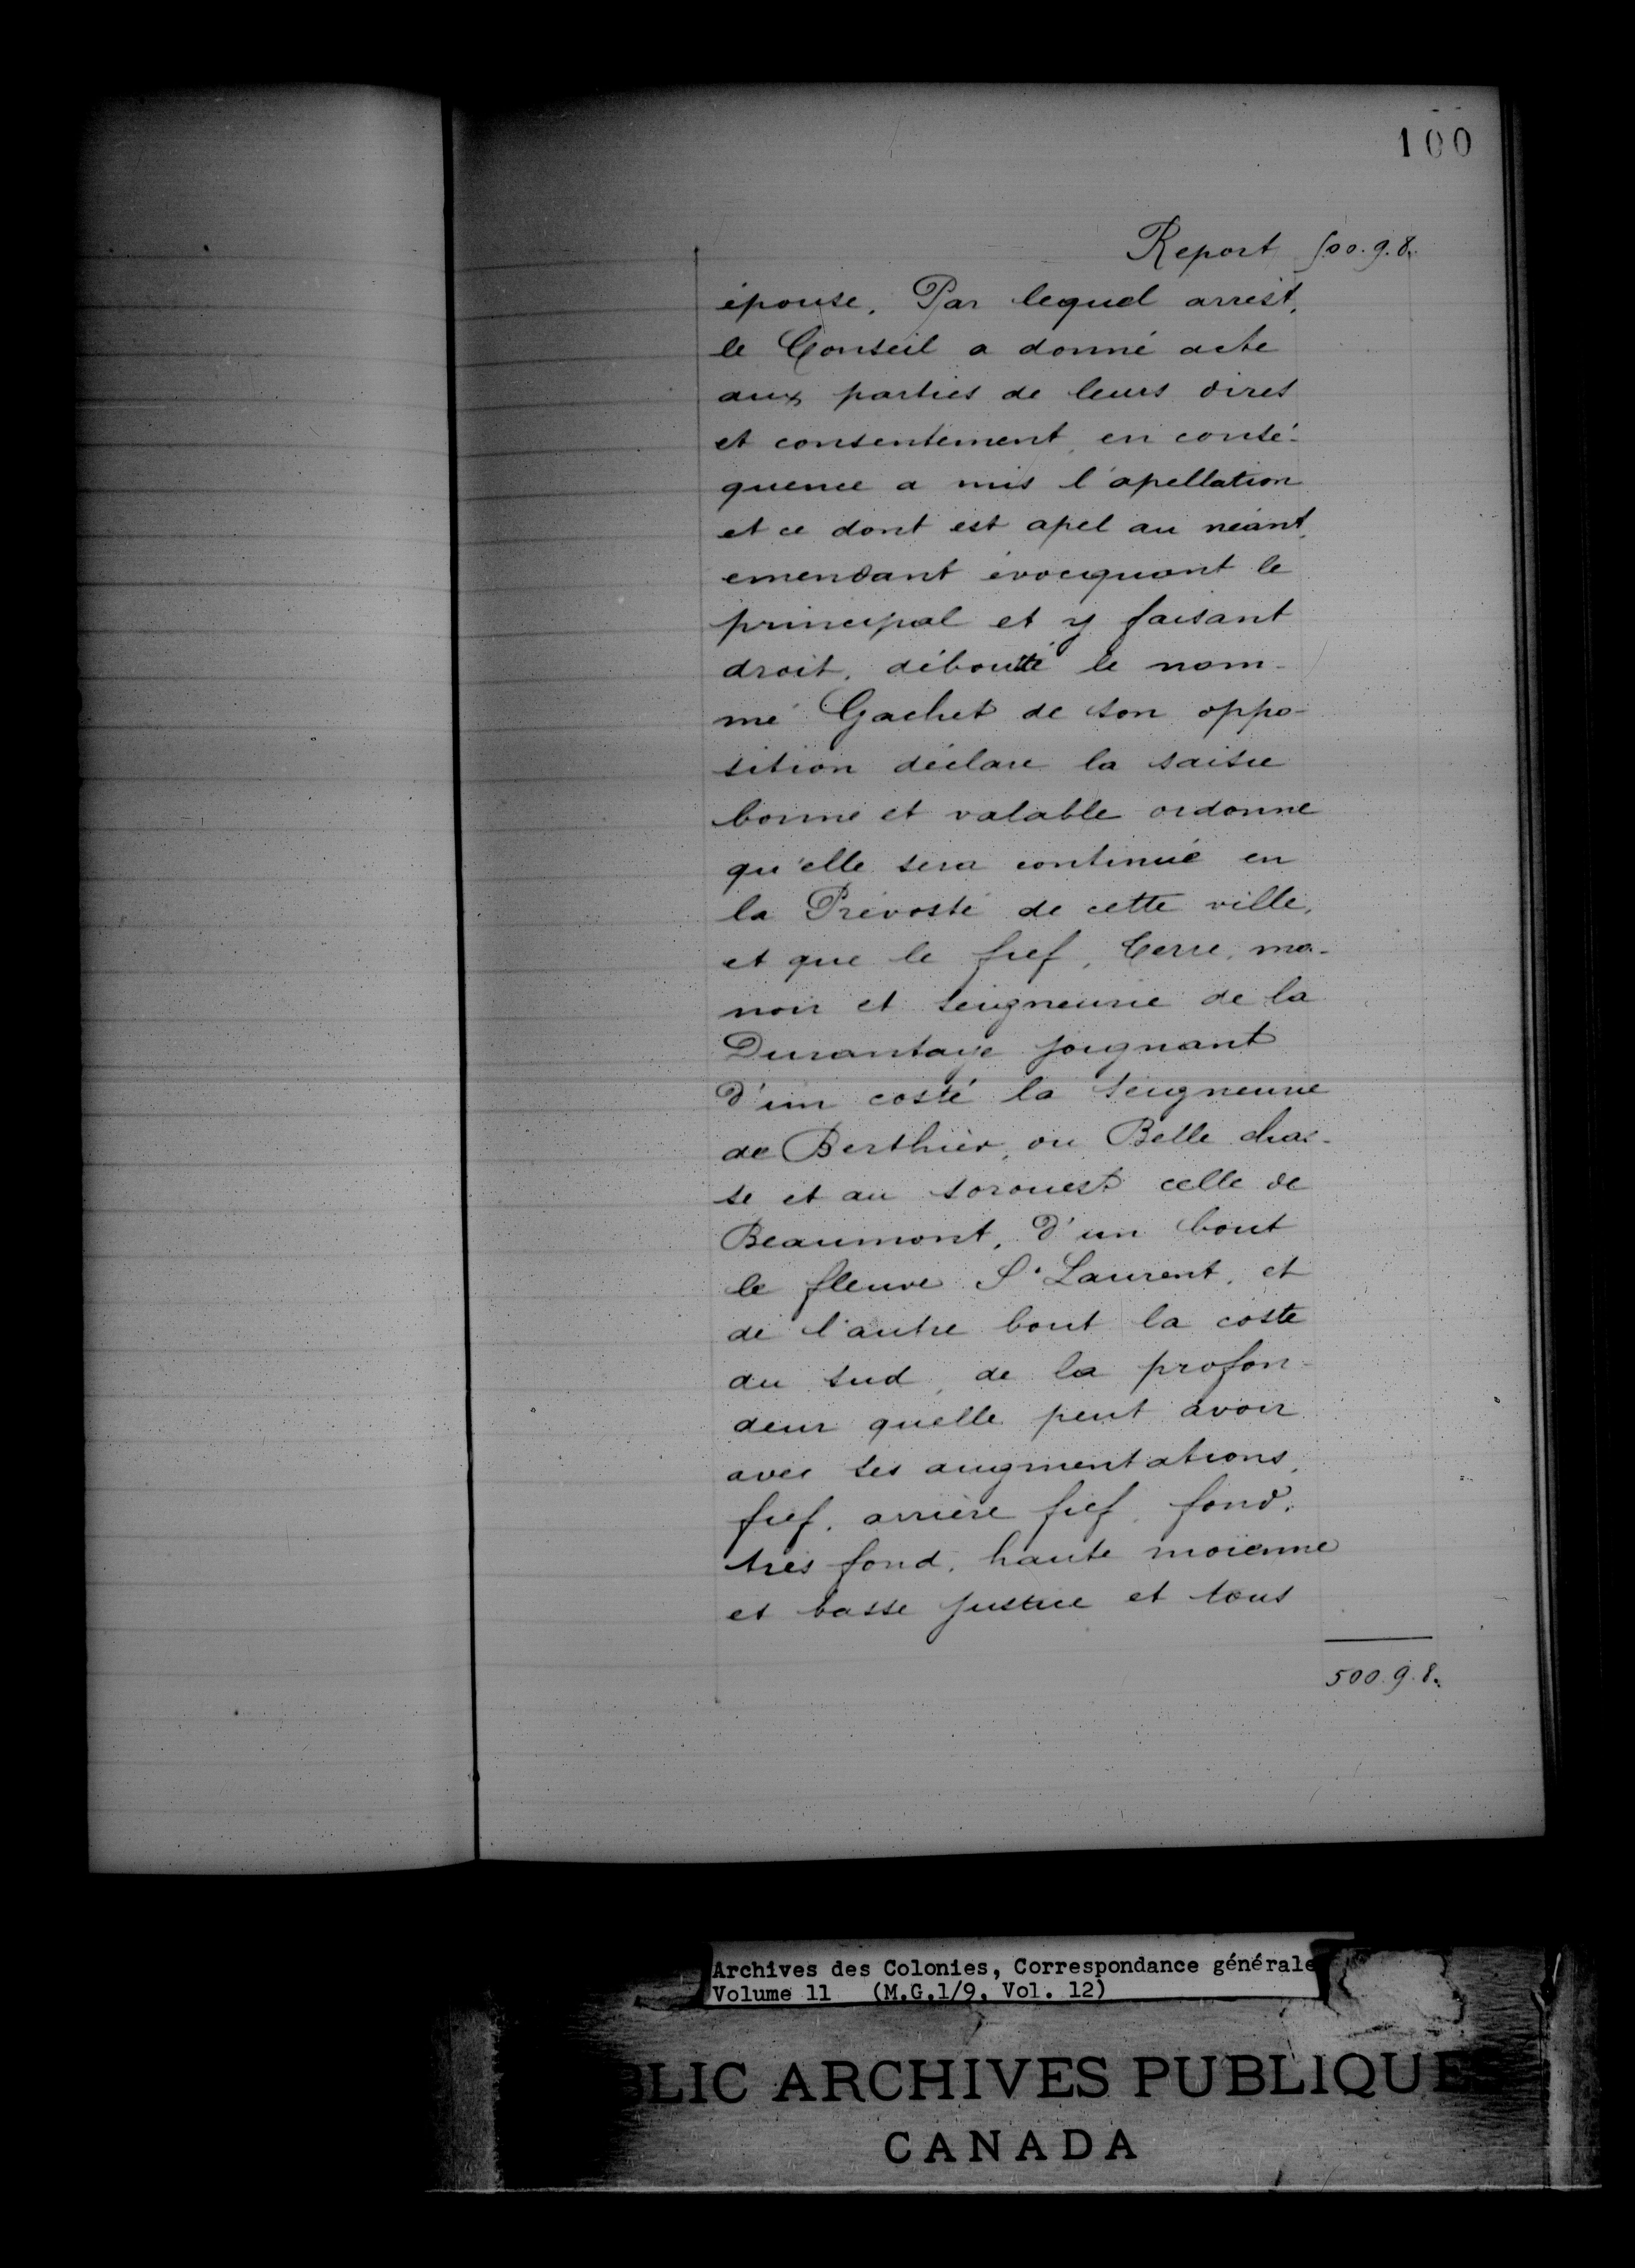 100
Report 500.9.8.
épouse. Par lequel arrest,
le Conseil a donné acte
aux parties de leurs dires
et consentement, en consé-
quence a mis l'apellation
et ce dont est apel au néant,
emendant évocquant le
principal et y faisant
droit, déboutté le nom-
mé Gachet de son oppo-
sition déclare la saisie
bonne et valable ordonne
qu'elle sera continuée en
la Prévosté de cette ville,
et que le fief, terre, ma-
noir et seigneurie de la
Durantaye joignant
d'un costé la seigneurie
de Berthier, ou Belle chas-
se et au sorouest celle de
Beaumont, d'un bout
le fleuve St Laurent, et
de l'autre bout la coste
du sud, de la profon-
deur quelle peut avoir
avec ses augmentations,
fief, arrière fief, fond,
très fond, haute moienne
et basse justice et tous
500.9.8.
Archives des Colonies, Correspondance générale
Volume 11 (M.G.1/9, Vol. 12)
BLIC ARCHIVES PUBLIQUE
CANADA